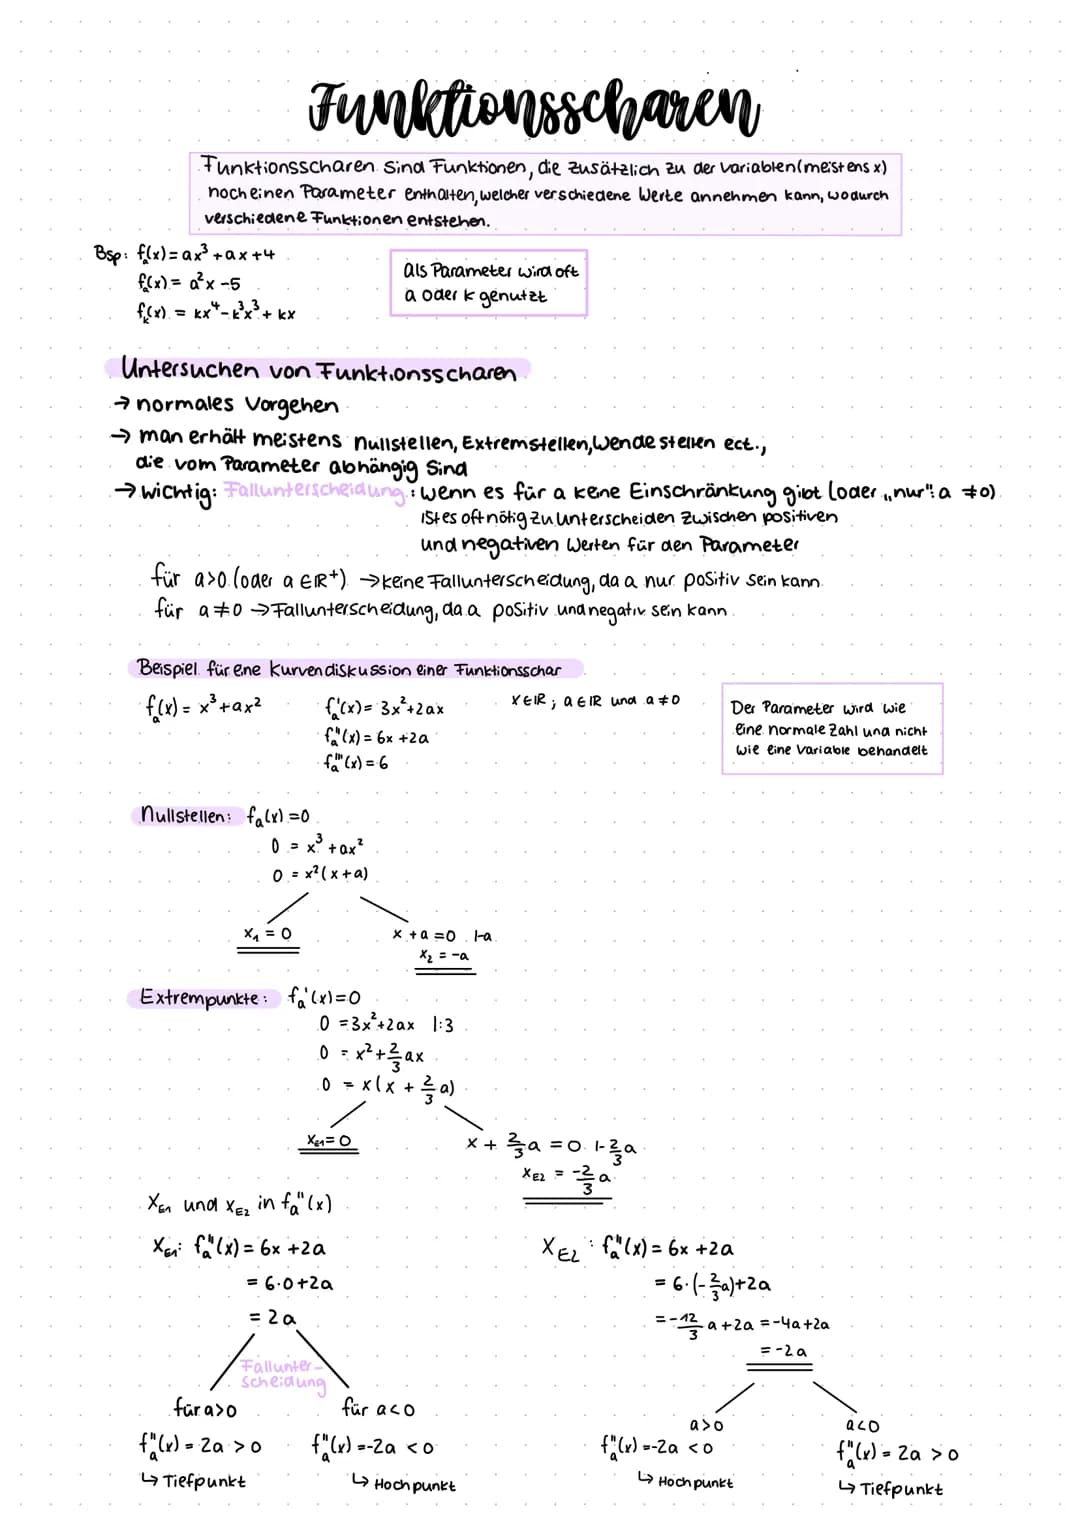 Funktionsscharen
Funktionsscharen sind Funktionen, die zusätzlich zu der Variablen (meistens x)
noch einen Parameter enthalten, welcher verschiedene Werte annehmen kann, wodurch
verschiedene Funktionen entstehen.
Bsp: fₐ(x) = ax³ + ax + 4
fₐ(x) = a²x - 5
fₖ(x) = kx⁴ - k³x³ + kx
als Parameter wird oft
a oder k genutzt
Untersuchen von Funktionsscharen
→ normales Vorgehen
→ man erhält meistens Nullstellen, Extremstellen, Wendestellen ect.,
die vom Parameter abhängig sind
→ wichtig: Fallunterscheidung: wenn es für a keine Einschränkung gibt (oder „nur": a ≠ 0)
ist es oft nötig zu unterscheiden zwischen positiven
und negativen Werten für den Parameter
für a>0 (oder a ∈ ℝ⁺) → keine Fallunterscheidung, da a nur positiv sein kann
für a≠0 → Fallunterscheidung, da a positiv und negativ sein kann
Beispiel für ene Kurvendiskussion einer Funktionsschar
fₐ(x) = x³ + ax²
fₐ'(x) = 3x² + 2ax
fₐ''(x) = 6x + 2a
fₐ'''(x) = 6
x∈ℝ ; a∈ℝ und a≠0
Der Parameter wird wie
eine normale Zahl und nicht
wie eine Variable behandelt
Nullstellen: fₐ(x) = 0
0 = x³ + ax²
0 = x²(x+a)
x₁ = 0
x + a = 0 |-a
x₂ = -a
Extrempunkte: fₐ'(x) = 0
0 = 3x² + 2ax |:3
0 = x² + 2/3 ax
0 = x(x + 2/3 a)
x_E1 = 0
x + 2/3 a = 0 |- 2/3 a
x_E2 = -2/3 a
x_E1 und x_E2 in fₐ''(x)
x_E1: fₐ''(x) = 6x + 2a
= 6·0 + 2a
= 2a
Fallunter-
scheidung
für a>0
fₐ''(x) = 2a > 0
↳ Tiefpunkt
für a<0
fₐ''(x) = -2a < 0
↳ Hochpunkt
X_E2: fₐ''(x) = 6x + 2a
= 6·(-2/3 a) + 2a
= -12/3 a + 2a = -4a + 2a
= -2a
a>0
fₐ''(x) = -2a < 0
↳ Hochpunkt
a<0
fₐ''(x) = 2a > 0
↳ Tiefpunkt